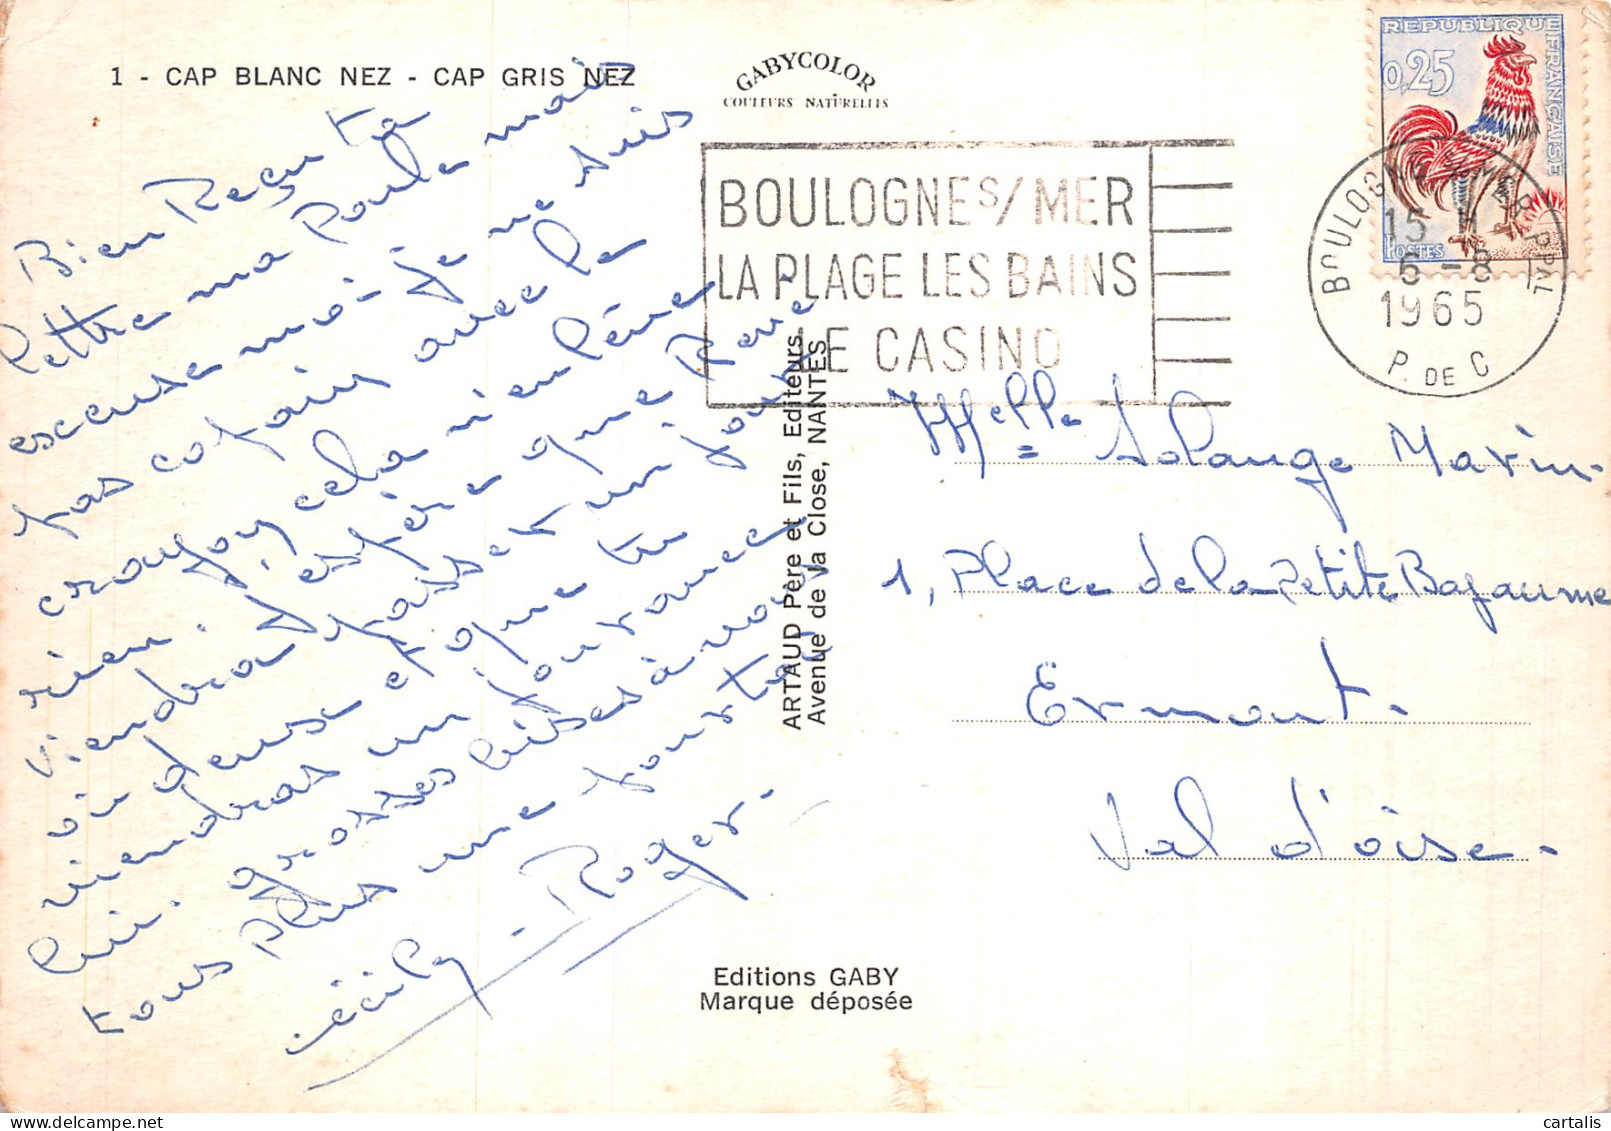 1 - CAP BLANC NEZ - CAP GRIS NEZ
GABYCOLOR
COULEURS NATURELLES
REPUBLIQUE FRANCAISE
0,25
POSTES
BOULOGNE S/MER
LA PLAGE LES BAINS
LE CASINO
BOULOGNE S MER PPAL
15 H
6 - 8
1965
P. DE C
Bien Reçu ta
lettre ma Poule mais
escuse moi je ne suis
pas copain avec le
crayon cela n'enlève
rien. J'espère que René
viendra passer un jour
ou deux et que tu
viendras un jour avec
lui. grosses bises à vous
tous plus une pour toi
Cécily - Roger.
ARTAUD Père et Fils, Editeurs
Avenue de la Close, NANTES
Melle Solange Marin
1, Place de la Petite Bapaume
Ermont.
Val d'oise.
Editions GABY
Marque déposée
cartalis